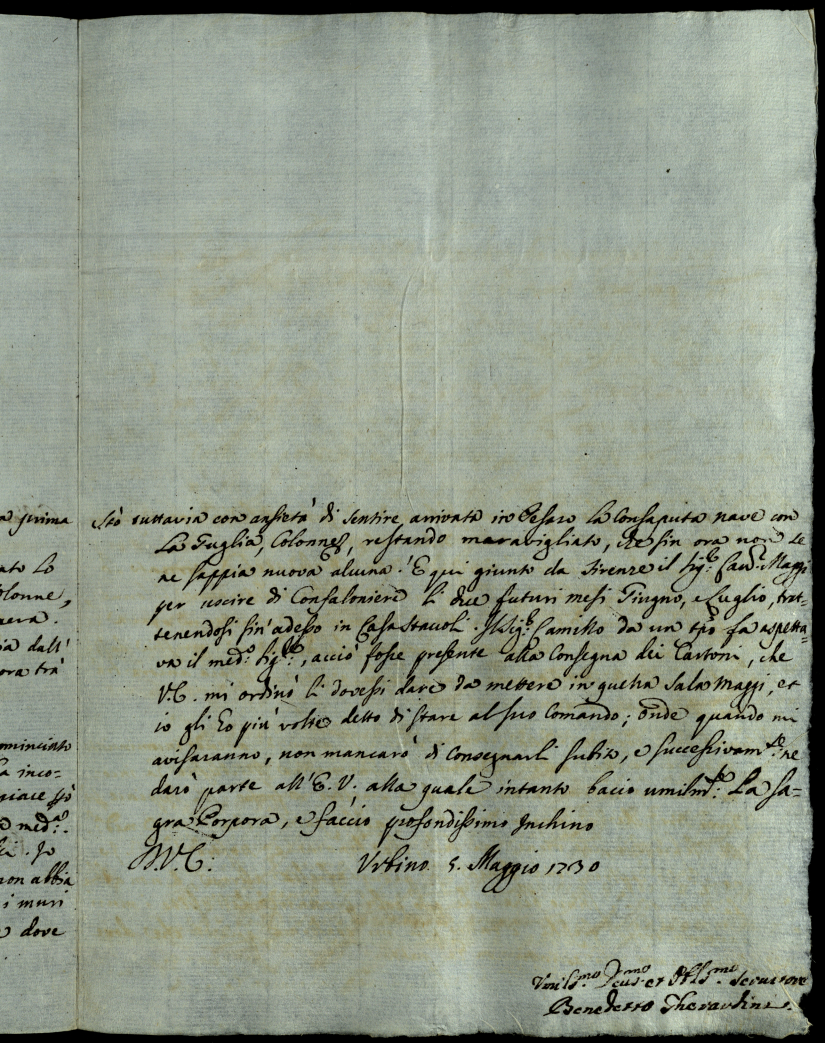 a prima
nato lo
olonne,
nerà.
ia dall'
ora trà
ominciato
la inco-
giace
e med.º
Io
non abbia
i muri
e dove
Stò tuttavia con ansietà di sentire arrivata in Pesaro la Consaputa nave con
La Guglia, Colonne, restando maravigliato, che sin ora non se
ne sappia nuova alcuna. È qui giunto da Firenze il Sig.re Cav.re Maggi
per uscire di Confaloniere li due futuri mesi Giugno, e Luglio, trat-
tenendosi sin'adesso in Casa Stavoli. Il Sig.re Camillo da un tpo fà aspetta-
va il med.º Sig.re, acciò fosse presente alla Consegna dei Cartoni, che
V.E. mi ordinò li dovessi dare da mettere in quella Sala Maggi, et
io gli hò più volte detto di stare al suo Comando; onde quando mi
avisaranno, non mancarò di Consegnarli subito, e successivam.te ne
darò parte all'E.V. alla quale intanto bacio umilm.te La Sa-
gra Porpora, e faccio profondissimo Inchino
D.V.E.
Urbino 5. Maggio 1730
Umil.mo Dev.mo et Obl.mo Servitore
Benedetto Gherardini